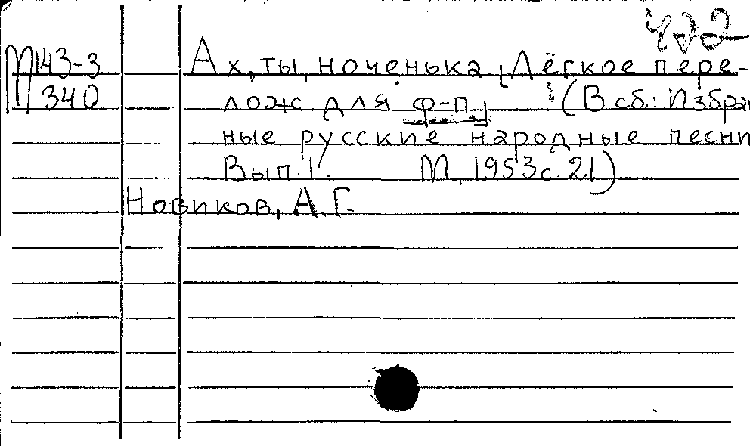 422
М 143-3
340
Ах, ты, ноченька [Лёгкое пере-
лож. для ф-п.] (В сб.: Избран
ные русские народные песни
Вып. 1. М, 1953 с. 21)
Новиков, А. Г.